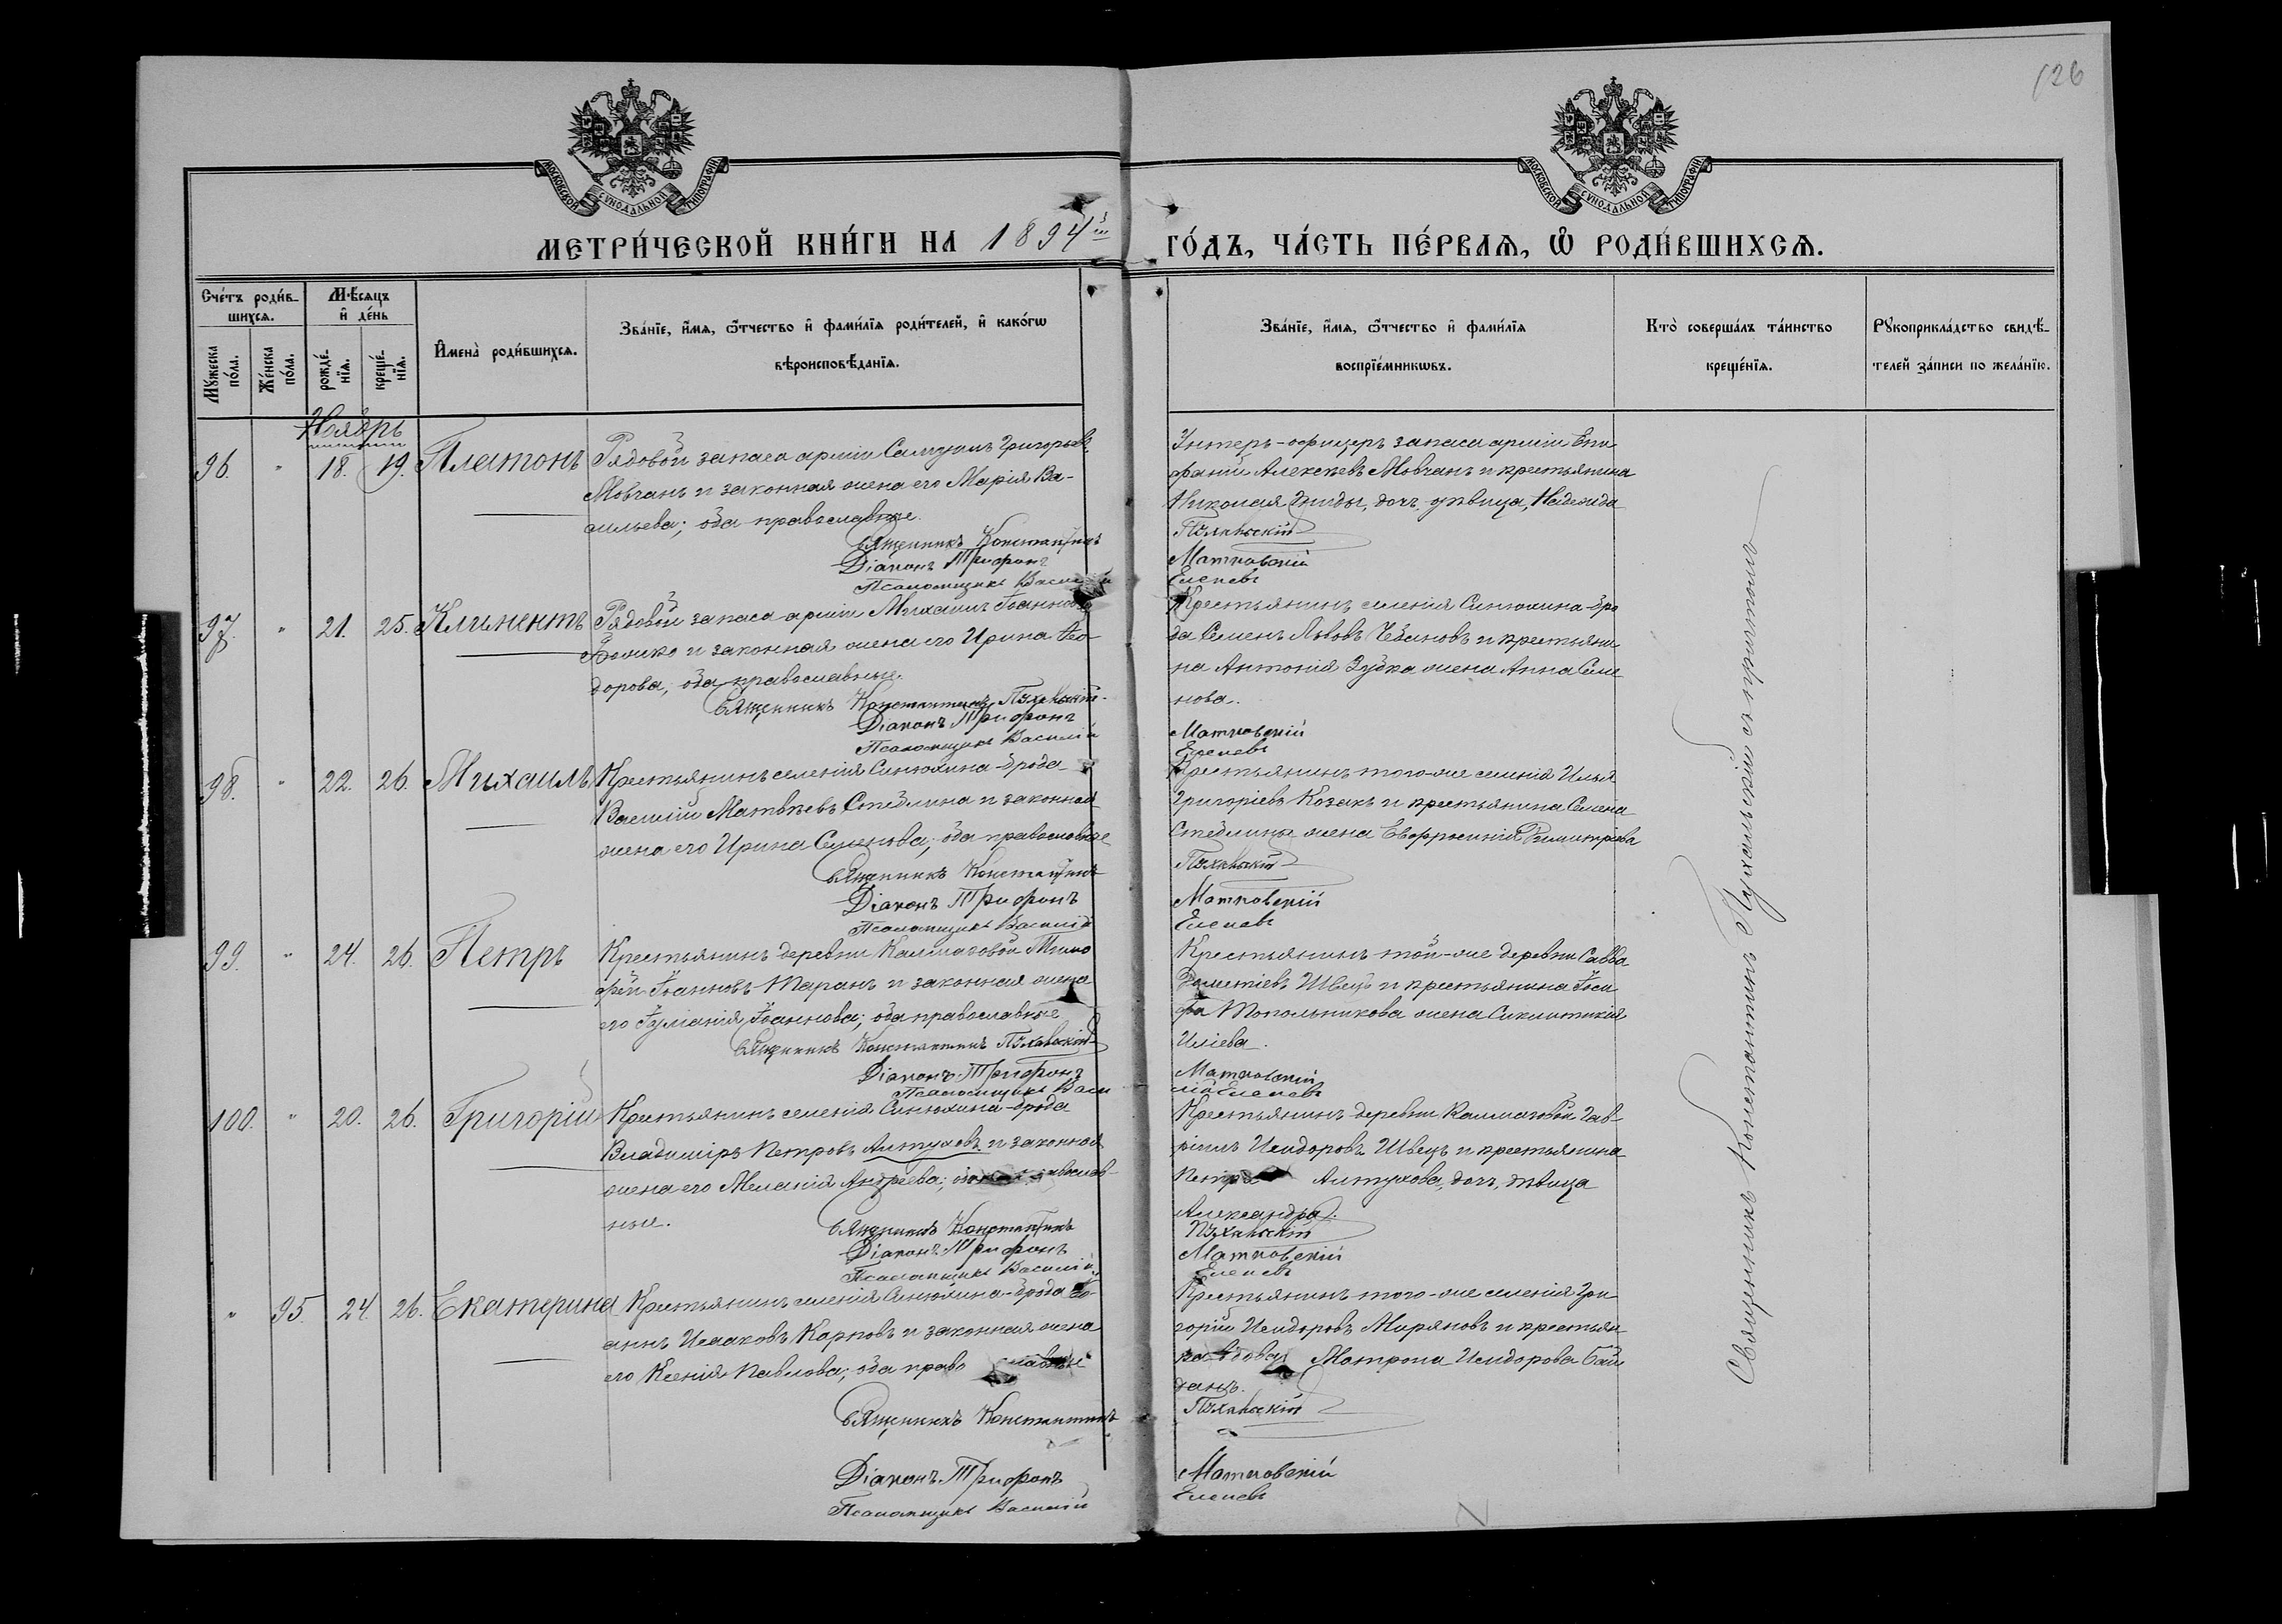 126
МОСКОВСКОЙ СѴНОДАЛЬНОЙ ТИПОГРАФІИ
МОСКОВСКОЙ СѴНОДАЛЬНОЙ ТИПОГРАФІИ
МЕТРИ́ЧЕСКОЙ КНИ́ГИ НА 1894й ГО́ДЪ, ЧА́СТЬ ПЕ́РВАѦ, Ѽ РОДИ́ВШИХСѦ.
Сче́тъ роди́вшихсѧ.
Мꙋ́жеска по́ла.
Же́нска по́ла.
Мѣ́сѧцъ и҆ де́нь
рожде́нїѧ.
креще́нїѧ.
И҆мена̀ роди́вшихсѧ.
Зва́нїе, и҆́мѧ, ѻ҆́тчество и҆ фами́лїѧ роди́телей, и҆ како́гѡ
вѣроисповѣ́данїѧ.
Зва́нїе, и҆́мѧ, ѻ҆́тчество и҆ фами́лїѧ
воспрїе́мникѡвъ.
Кто̀ соверша́лъ та́инство
креще́нїѧ.
Рꙋкоприкла́дство свидѣ́-
телей за́писи по жела́нїю.
Ноябрь
96. " 18. 19. Платонъ
Рядовой запаса арміи Самуилъ Григорьевъ
Мовчанъ и законная жена его Марія Ва-
сильева; оба православные.
Священникъ Константинъ
Діаконъ Трифонъ
Псаломщикъ Василій
Унтеръ-офицеръ запаса арміи Епи
фаній Алексѣевъ Мовчанъ и крестьянина
Николая дочь дѣвица, Надежда
Пухальскій
Матковскій
Еленевъ
97. " 21. 25. Климентъ
Рядовой запаса арміи Михаилъ Іоанновъ
и законная жена его Ирина Ѳео-
дорова, оба православные.
Священникъ Константинъ Пухальскій
Діаконъ Трифонъ
Псаломщикъ Василій
Крестьянинъ селенія Синюхина-бро
да Семенъ Львовъ Чебановъ и крестьяни
на Антонія Зубка жена Анна Семе
нова.
Матковскій
Еленевъ
98. " 22. 26. Михаилъ
Крестьянинъ селенія Синюхина-брода
Василій Матвѣевъ Стеблина и законная
жена его Ирина Семенова; оба православные
Священникъ Константинъ
Діаконъ Трифонъ
Псаломщикъ Василій
Крестьянинъ того-же селенія Илья
Григоріевъ Козакъ и крестьянина Семена
Стеблины жена Евфросинія Димитріева
Пухальскій
Матковскій
Еленевъ
99. " 24. 26. Петръ
Крестьянинъ деревни Калмазовой Тимо
фей Іоанновъ Таранъ и законная жена
его Іуліанія Іоаннова; оба православные
Священникъ Константинъ Пухальскій
Діаконъ Трифонъ
Псаломщикъ Васи
Крестьянинъ той-же деревни Савва
Дометіевъ Швецъ и крестьянина Іоси
фа Топольникова жена Синклитикія
Иліева.
Матковскій
лій Еленевъ
100. " 20. 26. Григорій
Крестьянинъ селенія Синюхина-брода
Владиміръ Петровъ Алтуховъ и законная
жена его Меланія Андреева; оба православ-
ные.
Священникъ Константинъ
Діаконъ Трифонъ
Псаломщикъ Василій
Крестьянинъ деревни Калмазовой Гав-
ріилъ Исидоровъ Швецъ и крестьянина
Петра Алтухова, дочь, дѣвица
Александра.
Пухальскій
Матковскій
Еленевъ
" 95. 24. 26. Екатерина
Крестьянинъ селенія Синюхина-брода Іо-
аннъ Исааковъ Карповъ и законная жена
его Ксенія Павлова; оба православные
Священникъ Константинъ
Діаконъ Трифонъ
Псаломщикъ Василій
Крестьянинъ того-же селенія Гри
горій Исидоровъ Миряновъ и крестьян
ка вдова Матрона Исидорова Бай
данъ.
Пухальскій
Матковскій
Еленевъ
Священникъ Константинъ Пухальскій съ причтомъ